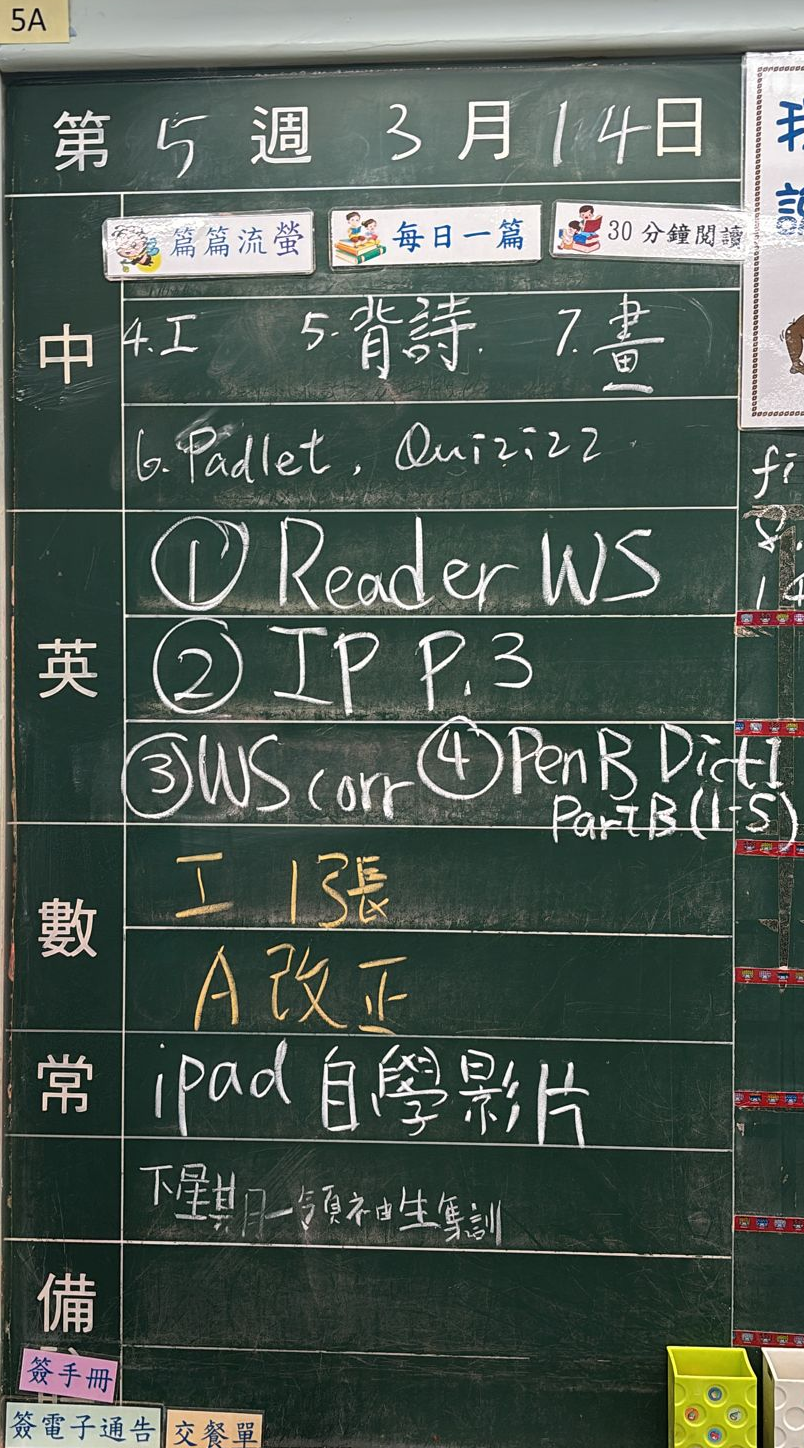 5A
第 5 週 3 月 14 日
篇篇流螢 每日一篇 30分鐘閱讀
中
4.工 5.背詩. 7.畫
6.Padlet, Quizizz
英
① Reader WS
② IP P.3
③ WS corr ④ PenB Dict1
PartB (1-5)
數
工 1張
A 改正
常
ipad 自學影片
下星期一領袖生集訓
備
簽手冊
簽電子通告 交餐單